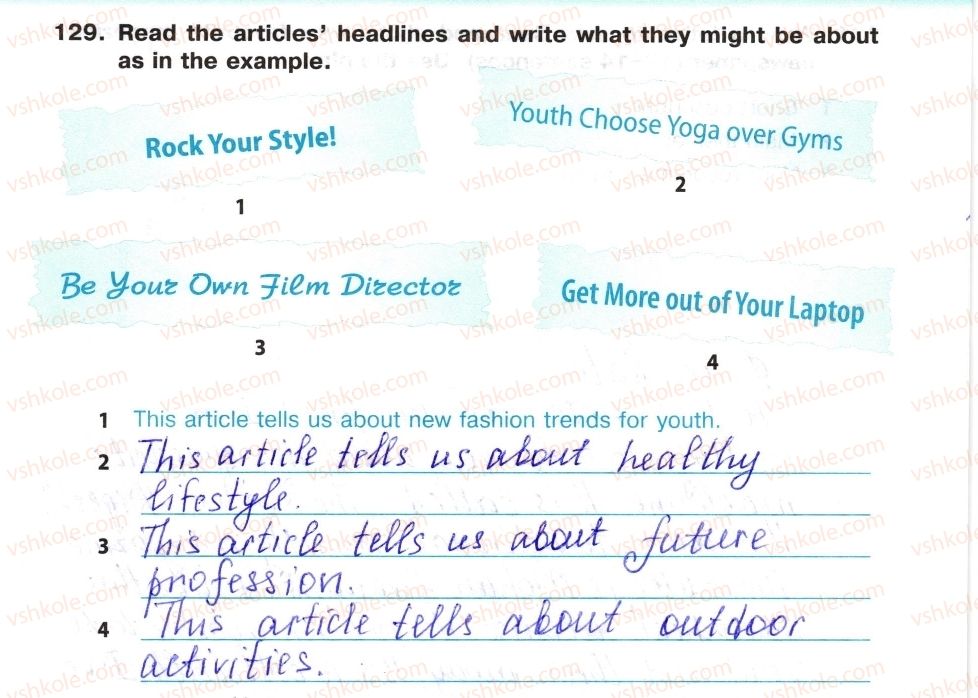 129. Read the articles' headlines and write what they might be about
as in the example.
Rock Your Style!
1
Youth Choose Yoga over Gyms
2
Be Your Own Film Director
3
Get More out of Your Laptop
4
1 This article tells us about new fashion trends for youth.
2 This article tells us about healthy
lifestyle.
3 This article tells us about future
profession.
4 This article tells about outdoor
activities.
vshkole.com